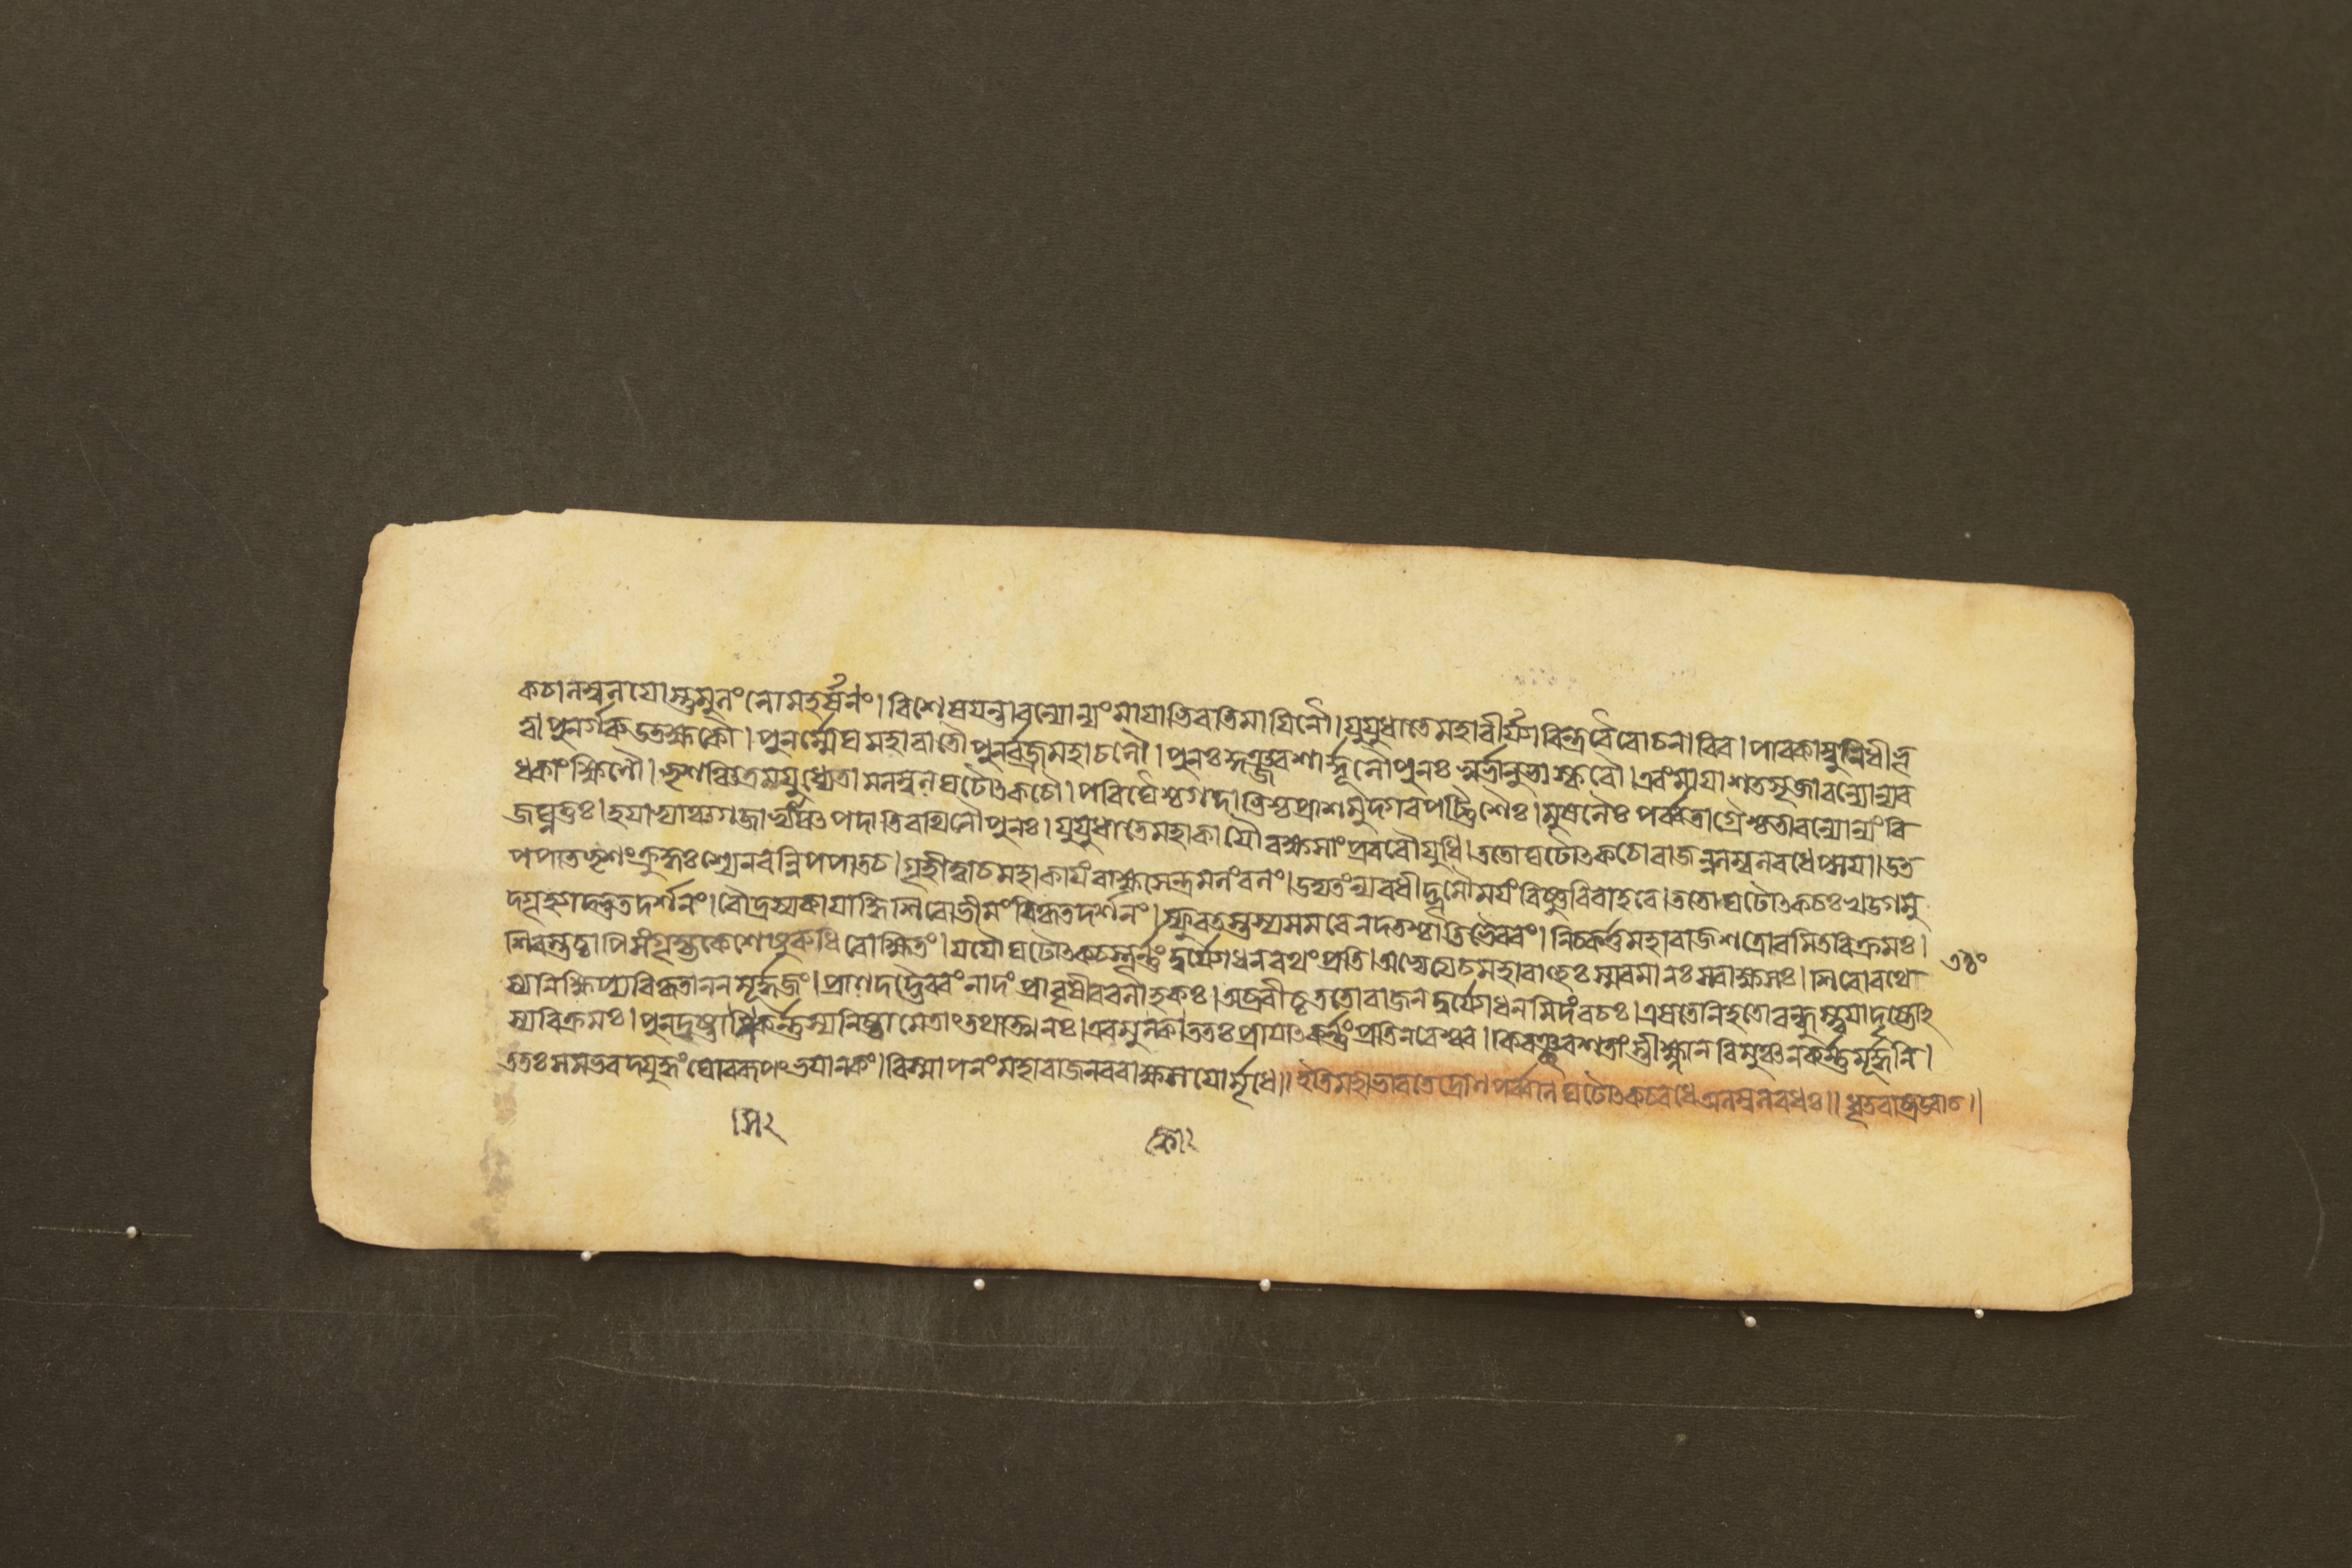 কচালম্বলযোস্তুমুলং লোমহর্ষণং। বিশেষযন্তাবন্যোন্যং মাযাভিরতিমাযিনৌ। যুযুধাতে মহাবীর্য্যাবিন্দ্রবৈরোচনাবিব। পাবকাম্বুনিধীভূ
ত্বা পুনর্গরুডতক্ষকৌ। পুনর্ম্মেঘমহাবাতৌ পুনর্বজ্রমহাচলৌ। পুনঃ কুঞ্জরশার্দ্দূলৌ পুনঃ স্বর্ভানুভাস্করৌ। এবং মাযাশতসৃজাবন্যোন্যব
ধকাংক্ষিণৌ। ভৃশঞ্চিত্রমযুধ্যেতামলম্বলঘটোৎকচৌ। পরিঘৈশ্চ গদাভিশ্চ প্রাশমুদগরপট্টিশৈঃ। মুষলৈঃ পর্ব্বতাগ্রৈশ্চ তাবন্যোন্যং বি
জঘ্নতুঃ। হযাভ্যাঞ্চ গজাভ্যাঞ্চ পদাতিরথিনৌ পুনঃ। যুযুধাতে মহাকাযৌ রক্ষসাং প্রবরৌ যুধি। ততো ঘটোৎকচো রাজন্নলম্বলবধেপ্সযা। উত
পপাত ভৃশং ক্রুদ্ধঃ শ্যেনবন্নিপপাত চ। গৃহীত্বা চ মহাকাযং রাক্ষসেন্দ্রমলংবলং। উদ্যতং ন্যবধীদ্ভূমৌ মযং বিষ্ণুরিবাহবে। ততো ঘটোৎকচঃ খড্গমু
দগৃহ্যাদ্ভুতদর্শনং। রৌদ্রস্য কাযাদ্ধি শিরো ভীমং বিকৃতদর্শনং। স্ফুরতস্তস্য সমরে নদতশ্চাতিভৈরবং। নিচকর্ত্ত মহারাজ শত্রোরমিতবিক্রমঃ।
শিরস্তচ্চাপি সংগৃহ্য কেশেষু রুধিরোক্ষিতং। যযৌ ঘটোৎকচস্তূর্ণ্ণং দুর্য্যোধনরথং প্রতি। অভ্যেত্য চ মহাবাহুঃ স্মযমানঃ স রাক্ষসঃ। শিরো রথে
স্য নিক্ষিপ্য বিকৃতাননমূর্দ্ধজং। প্রাণদদ্ভৈরবং নাদং প্রাবৃষীব বলাহকঃ। অব্রবীচ্চ ততো রাজন দুর্য্যোধনমিদং বচঃ। এষ তে নিহতো বন্ধুস্ত্বযা দৃষ্টোঽ
স্য বিক্রমঃ। পুনর্দ্রষ্টাসি কর্ণ্ণস্য নিষ্ঠামেতাং তথাত্মনঃ। এবমুক্ত্বা ততঃ প্রাযাৎ কর্ণ্ণং প্রতি নরেশ্বর। কিরঞ্ছরশতাংস্তীক্ষ্ণান বিমুঞ্চন কর্ণ্ণমূর্দ্ধনি।
ততঃ সমভবদ্যুদ্ধং ঘোররূপং ভযানকং। বিস্মাপনং মহারাজ নররাক্ষসযোর্মৃধে॥ ইতি মহাভারতে দ্রোণপর্ব্বণি ঘটোৎকচবধে অলম্বলবধঃ॥ ধৃতরাষ্ট্র উবাচ॥